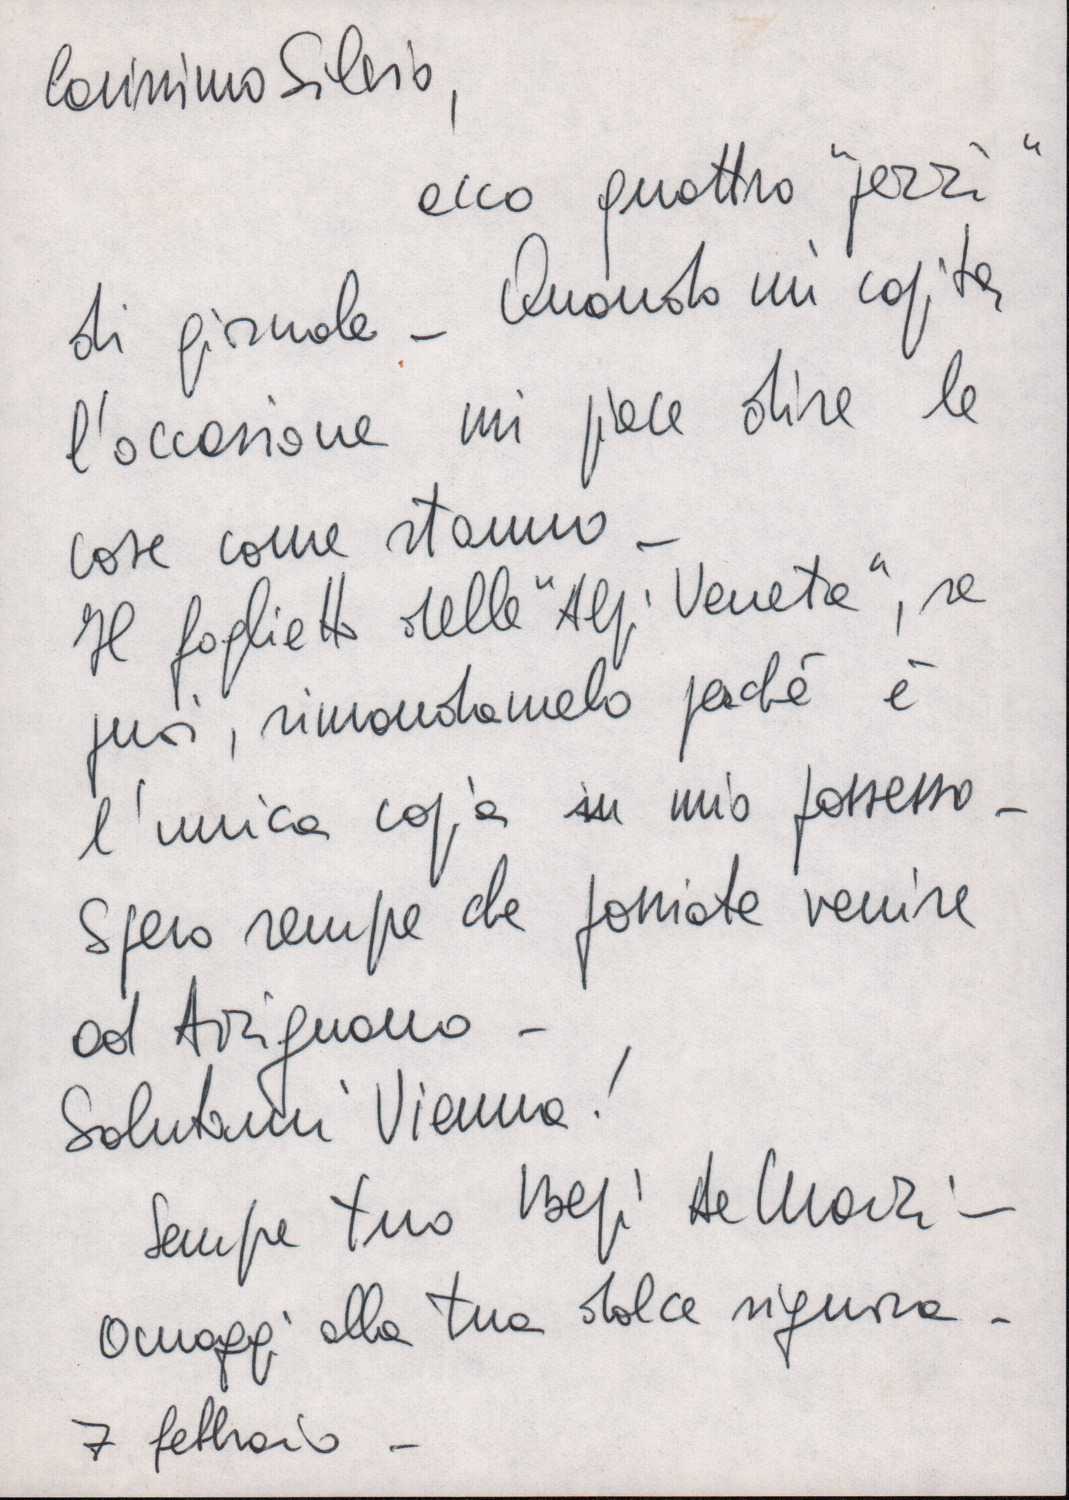 Carissimo Silvio,
ecco quattro "pezzi"
di giornale - Quando mi capita
l'occasione mi piace dire le
cose come stanno -
Il foglietto delle "Alpi Venete", se
puoi, rimandamelo perché è
l'unica copia in mio possesso -
Spero sempre che possiate venire
ad Arzignano -
Salutami Vienna!
Sempre tuo Bepi De Marzi -
Omaggi alla tua dolce signora -
7 febbraio -